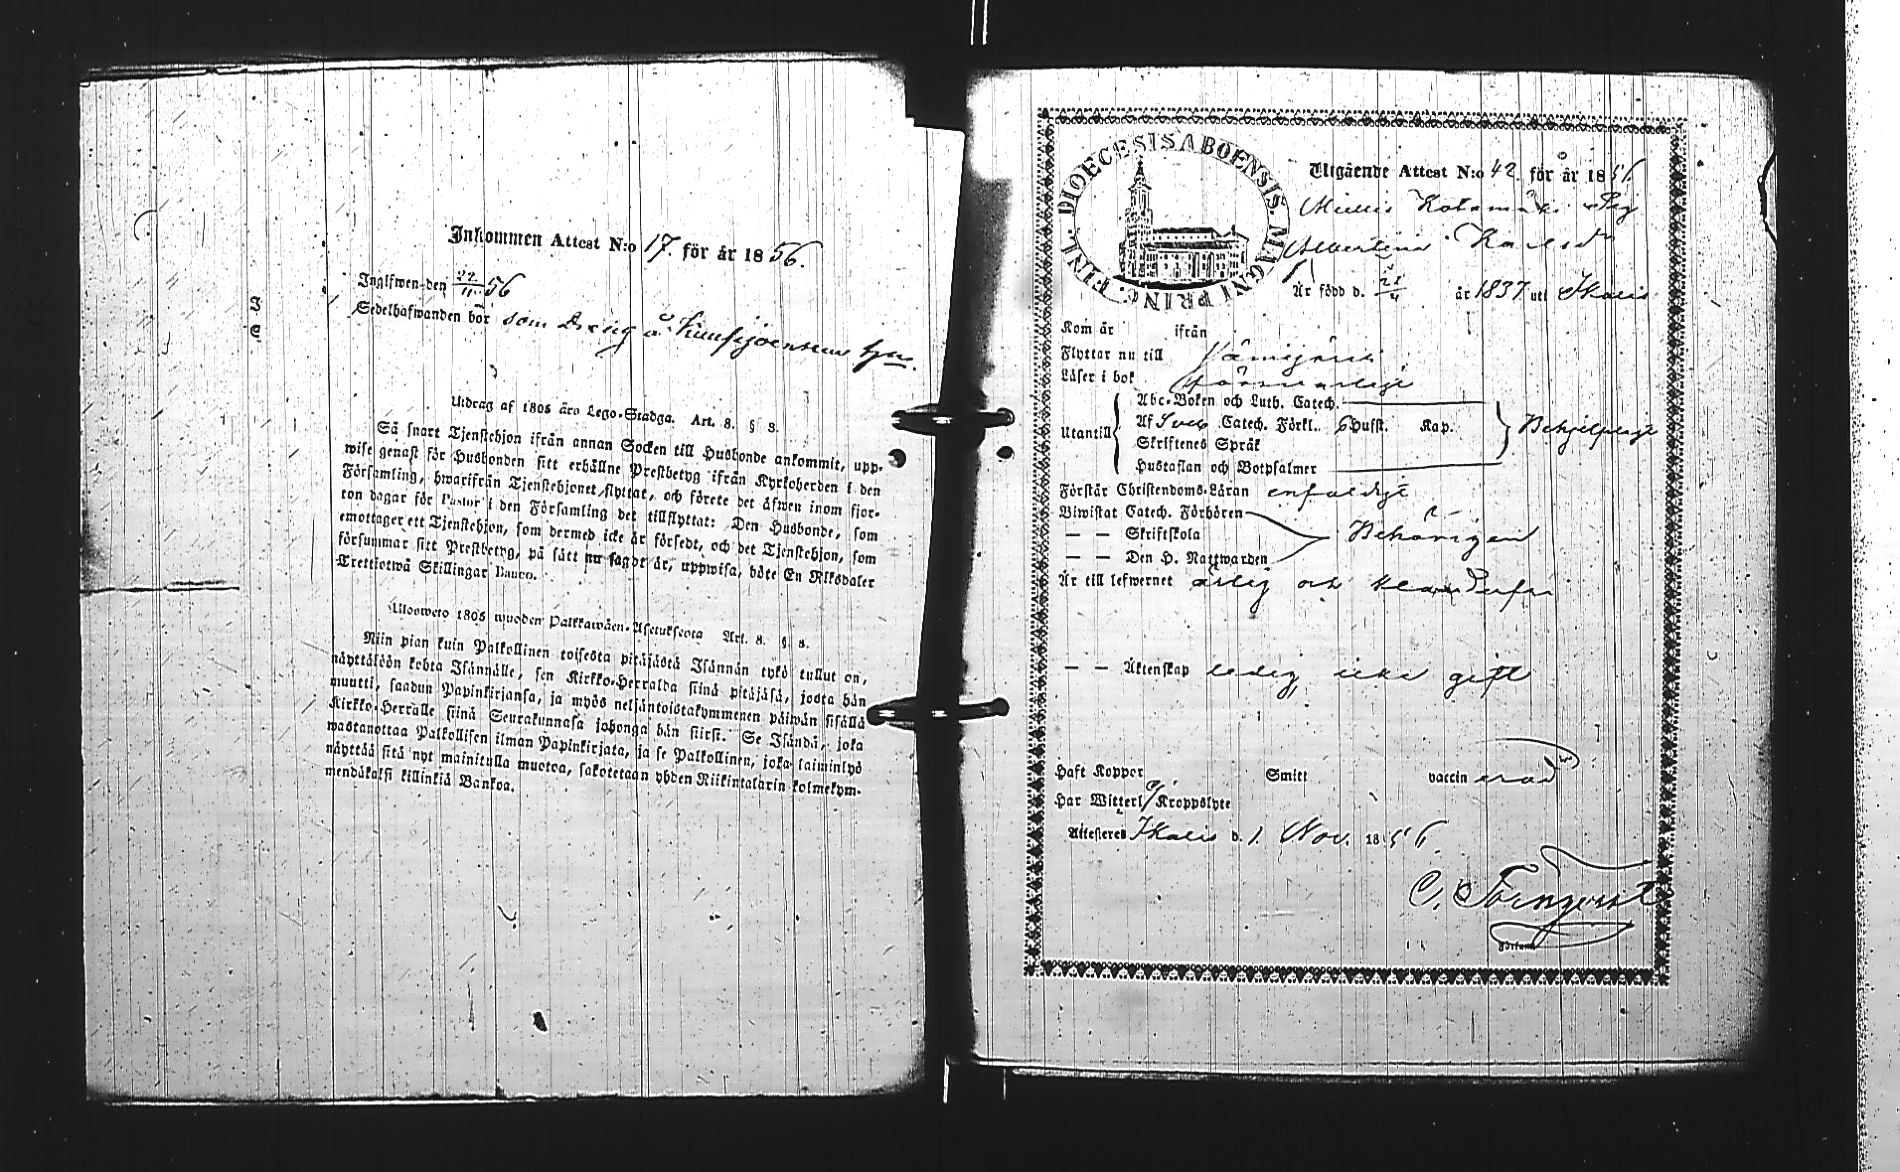 Inkommen Attest N:o 17. för år 1856.
Inglfwen den 22/11 56
Sedelhafwanden bör som Dreng å
Utdrag af 1805 års Lego-Stadga. Art. 8. § 3.
Så snart Tjenstehjon ifrån annan Socken till Husbonde ankommit, upp-
wise genast för Husbonden sitt erhållne Prestbetyg ifrån Kyrkoherden i den
Församling, hwarifrån Tjenstehjonet flyttat, och förete det äfwen inom fjor-
ton dagar för Pastor i den Församling det tillflyttat: Den Husbonde, som
emottager ett Tjenstehjon, som dermed icke är försedt, och det Tjenstehjon, som
försummar sitt Prestbetyg, på sätt nu sagdt är, uppwisa, böte En Riksdaler
Trettiotwå Skillingar Banco.
Ulosweto 1805 wuoden Palkkawäen-Asetuksesta Art. 8. §. 3.
Niin pian kuin Palkollinen toisesta pitäjästä Isännän tykö tullut on,
näyttäköön kohta Isännälle, sen Kirkko-Herralda siinä pitäjäsä, josta hän
muutti, saadun Papinkirjansa, ja myös neljäntoistakymmenen päiwän sisällä
Kirkko-Herralle siinä Seurakunnasa johonga hän siirsi. Se Isändä, joka
wastanottaa Palkollisen ilman Papinkirjata, ja se Palkollinen, joka laiminlyö
näyttää sitä nyt mainitulla muotoa, sakotetaan yhden Riikintalarin kolmekym-
mendäkaksi killinkiä Bankoa.
DIOECESIS ABOENSIS. MAGNI PRINC. FINL.
Utgående Attest N:o 42 för år 1856
Är född d. 21/4 år 1837 uti Ikalis
Kom år ifrån
Flyttar nu till Jämijärvi
Läser i bok
Utantill
Abc-Boken och Luth. Catech.
Af Sveb Catech. Förkl. 6 Hufst. Kap.
Skriftenes Språk
Hustaflan och Botpsalmer
Behjelpligt
Förstår Christendoms-Läran enfaldigt
Biwistat Catech. Förhören
— — Skriftskola
— — Den H. Nattwarden
Behörigen
Är till lefwernet ärlig och
— — Äktenskap ledig, icke gift
Haft Koppor Smitt vaccin
Har Witterl. Kroppslyte
Attesteres Ikalis d. 1. Nov. 1856.
C. Törnqvist